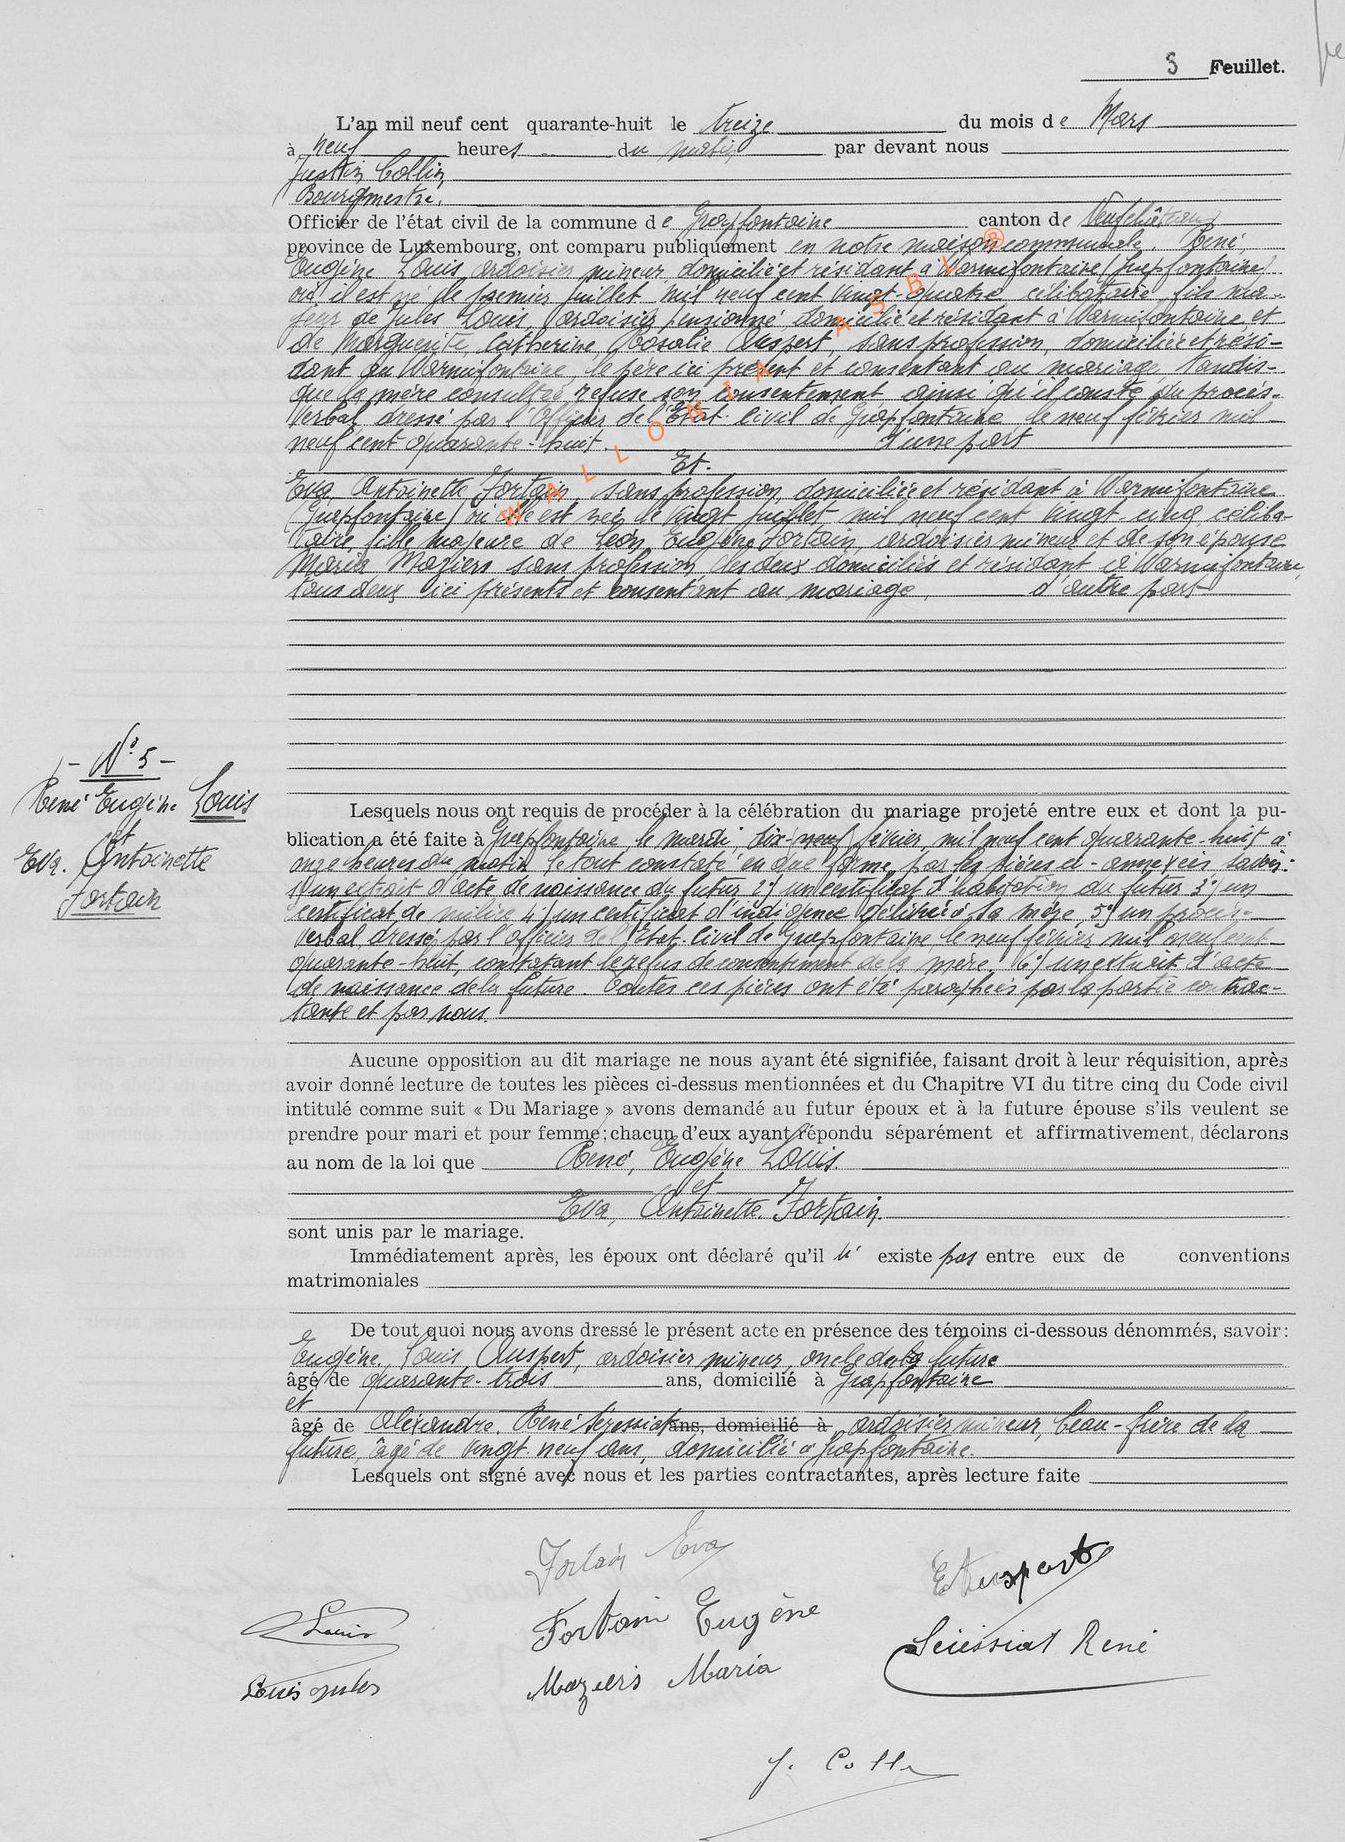 3 Feuillet.
L'an mil neuf cent quarante-huit le treize du mois de Mars
à neuf heures du matin par devant nous
Justin Collin,
Bourgmestre,
Officier de l'état civil de la commune de Grapfontaine canton de Neufchâteau
province de Luxembourg, ont comparu publiquement en notre maison communale. René
Eugène Louis, ardoisier mineur, domicilié et résidant à Warmifontaine (Grapfontaine)
où il est né le premier juillet mil neuf cent vingt quatre, célibataire, fils ma-
jeur de Jules Louis, ardoisier pensionné domicilié et résidant à Warmifontaine et
de Marguerite, Catherine, Rosalie Auspert, sans profession, domiciliée et rési-
dant à Warmifontaine, le père ici présent et consentant au mariage tandis-
que la mère consultée, refuse son consentement ainsi qu'il conste du procès-
verbal dressé par l'Officier de l'Etat Civil de Grapfontaine, le neuf février mil
neuf cent quarante-huit. d'une part
Et.
Eva, Antoinette Fortain, sans profession, domiciliée et résidant à Warmifontaine
(Grapfontaine) où elle est née le vingt juillet mil neuf cent vingt cinq, céliba-
taire, fille majeure de Léon, Eugène Fortain, ardoisier mineur et de son épouse
Maria Maziers sans profession, les deux domiciliés et résidant à Warmifontaine,
tous deux ici présents et consentant au mariage, d'autre part
WALLONIA ASBL ®
- N° 5 -
René Eugène Louis
et
Eva. Antoinette
Fortain
Lesquels nous ont requis de procéder à la célébration du mariage projeté entre eux et dont la pu-
blication a été faite à Grapfontaine, le mardi, dix-neuf février, mil neuf cent quarante-huit à
onze heures du matin, le tout constaté en due forme, par les pièces ci-annexées, savoir:
1°) un extrait d'acte de naissance du futur 2°) un certificat d'habitation du futur 3°) un
certificat de milice 4°) un certificat d'indigence délivré à la mère, 5°) un procès-
verbal dressé par l'officier de l'Etat-Civil de Grapfontaine, le neuf février mil neuf cent
quarante-huit, constatant le refus de consentement de la mère 6°) un extrait d'acte
de naissance de la future. Toutes ces pièces ont été paraphées par la partie contrac-
tante et par nous.
Aucune opposition au dit mariage ne nous ayant été signifiée, faisant droit à leur réquisition, après
avoir donné lecture de toutes les pièces ci-dessus mentionnées et du Chapitre VI du titre cinq du Code civil
intitulé comme suit « Du Mariage » avons demandé au futur époux et à la future épouse s'ils veulent se
prendre pour mari et pour femme; chacun d'eux ayant répondu séparément et affirmativement, déclarons
au nom de la loi que René, Eugène Louis.
et
Eva, Antoinette. Fortain.
sont unis par le mariage.
Immédiatement après, les époux ont déclaré qu'il n' existe pas entre eux de conventions
matrimoniales
De tout quoi nous avons dressé le présent acte en présence des témoins ci-dessous dénommés, savoir:
Eugène, Louis, Auspert, ardoisier mineur, oncle de la future
âgé de quarante-trois ans, domicilié à Grapfontaine
et
âgé de Alexandre. René Seressiat ans, domicilié à ardoisier mineur, beau-frère de la
future, âgé de vingt neuf ans, domicilié à Grapfontaine.
Lesquels ont signé avec nous et les parties contractantes, après lecture faite
Fortain Eva
E Auspert
Louis
Fortain Eugène
Seressiat René
Louis Jules
Maziers Maria
J. Collin